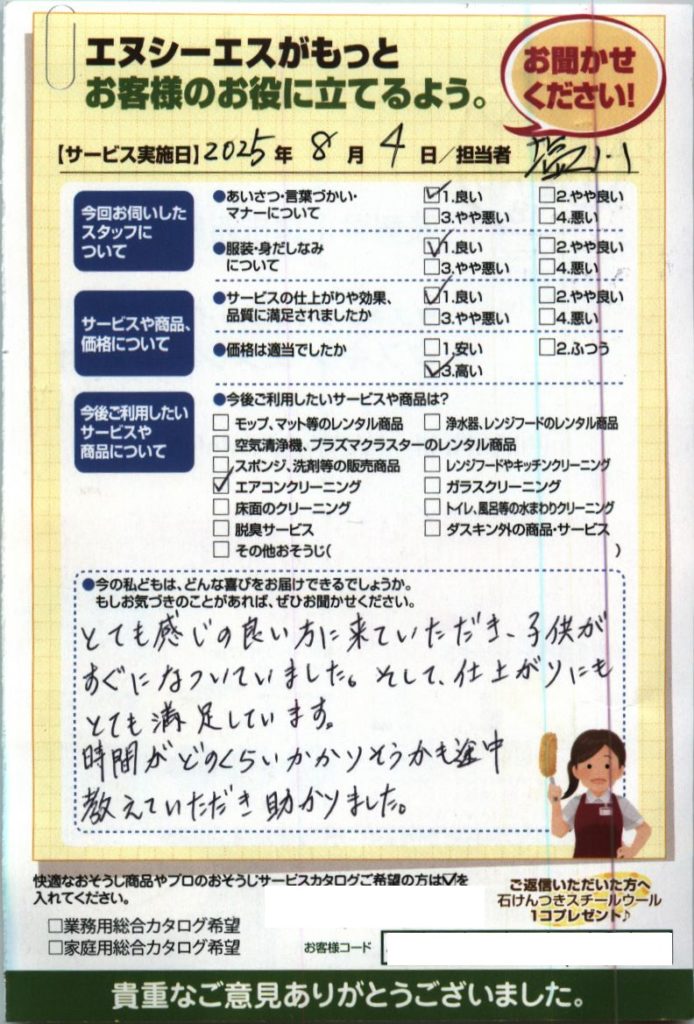 エヌシーエスがもっと
お客様のお役に立てるよう。
お聞かせ
ください!
【サービス実施日】2025年 8月 4日/担当者
今回お伺いした
スタッフに
ついて
●あいさつ・言葉づかい・
マナーについて
☑1.良い □2.やや良い
□3.やや悪い □4.悪い
●服装・身だしなみ
について
☑1.良い □2.やや良い
□3.やや悪い □4.悪い
サービスや商品、
価格について
●サービスの仕上がりや効果、
品質に満足されましたか
☑1.良い □2.やや良い
□3.やや悪い □4.悪い
●価格は適当でしたか
□1.安い □2.ふつう
☑3.高い
今後ご利用したい
サービスや
商品について
●今後ご利用したいサービスや商品は?
□モップ、マット等のレンタル商品 □浄水器、レンジフードのレンタル商品
□空気清浄機、プラズマクラスターのレンタル商品
□スポンジ、洗剤等の販売商品 □レンジフードやキッチンクリーニング
☑エアコンクリーニング □ガラスクリーニング
□床面のクリーニング □トイレ、風呂等の水まわりクリーニング
□脱臭サービス □ダスキン外の商品・サービス
□その他おそうじ( )
●今の私どもは、どんな喜びをお届けできるでしょうか。
もしお気づきのことがあれば、ぜひお聞かせください。
とても感じの良い方に来ていただき、子供が
すぐになついていました。そして、仕上がりにも
とても満足しています。
時間がどのくらいかかりそうかも途中
教えていただき助かりました。
快適なおそうじ商品やプロのおそうじサービスカタログご希望の方は☑を
入れてください。
□業務用総合カタログ希望
□家庭用総合カタログ希望
ご返信いただいた方へ
石けんつきスチールウール
1コプレゼント♪
お客様コード
貴重なご意見ありがとうございました。